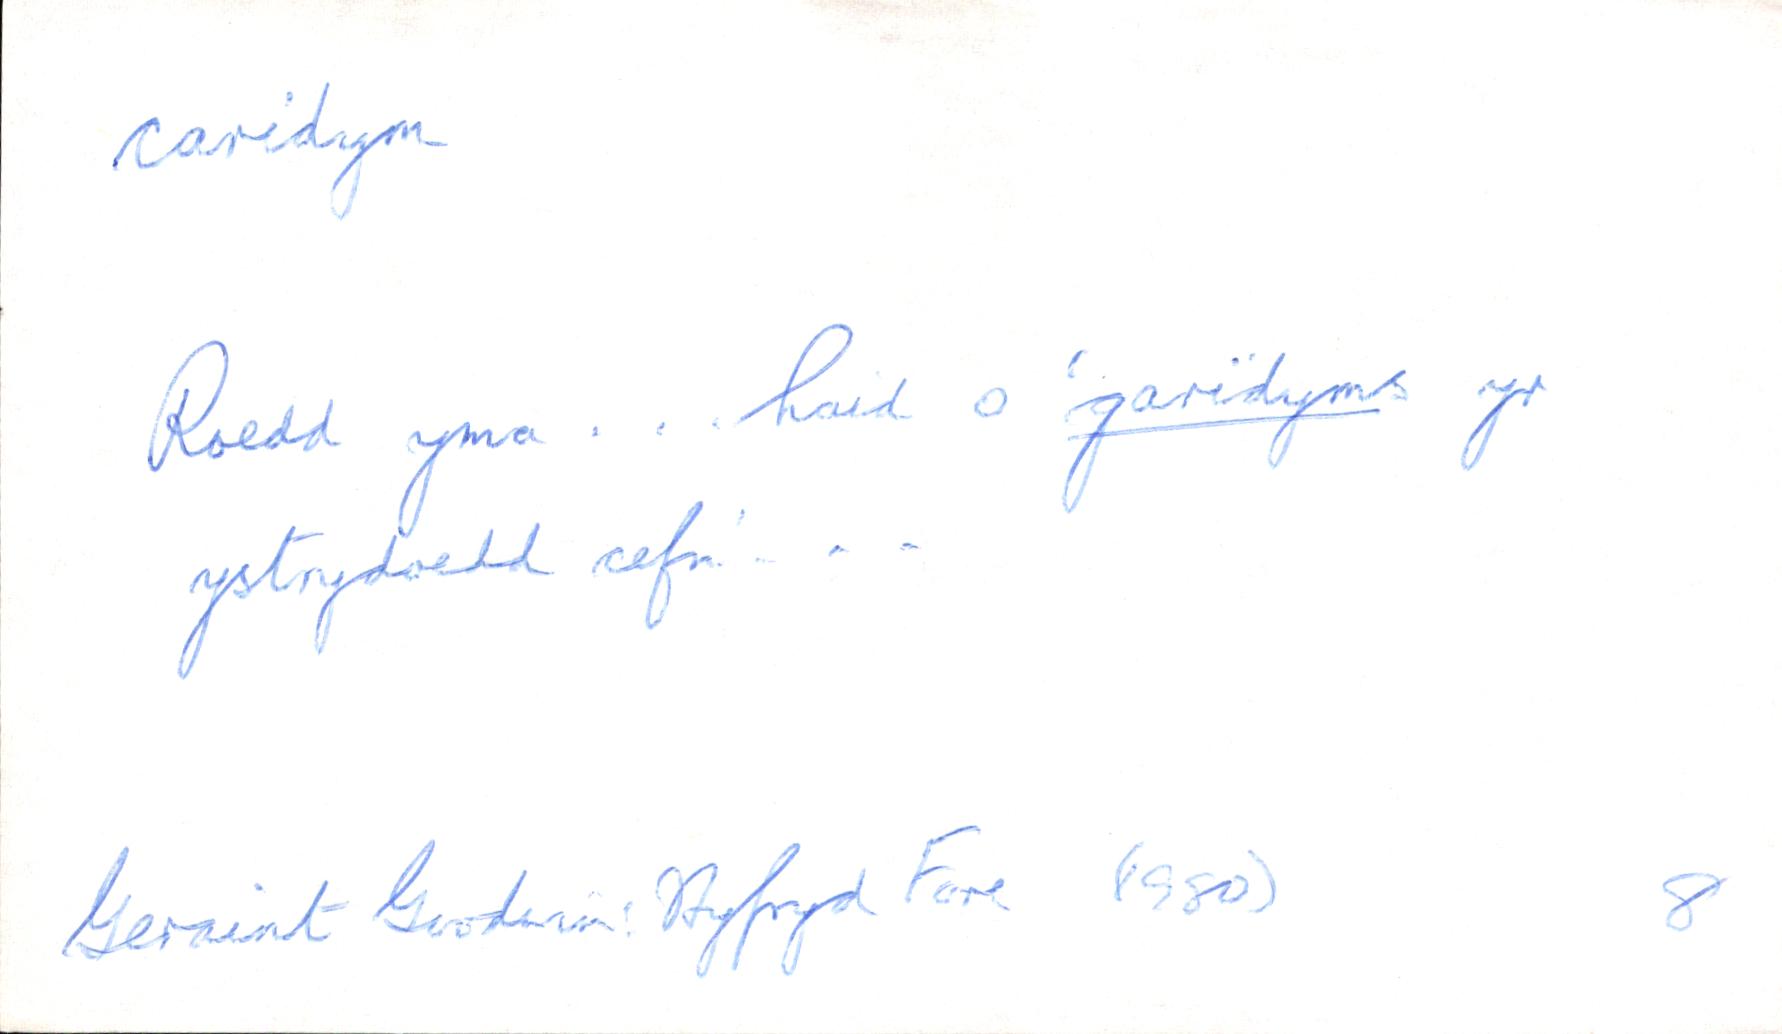 caridym
Roedd yma . . . haid o 'garidyms yr
ystrydoedd cefn' . . .
Geraint Goodwin: Hyfryd Fore (1980) 8